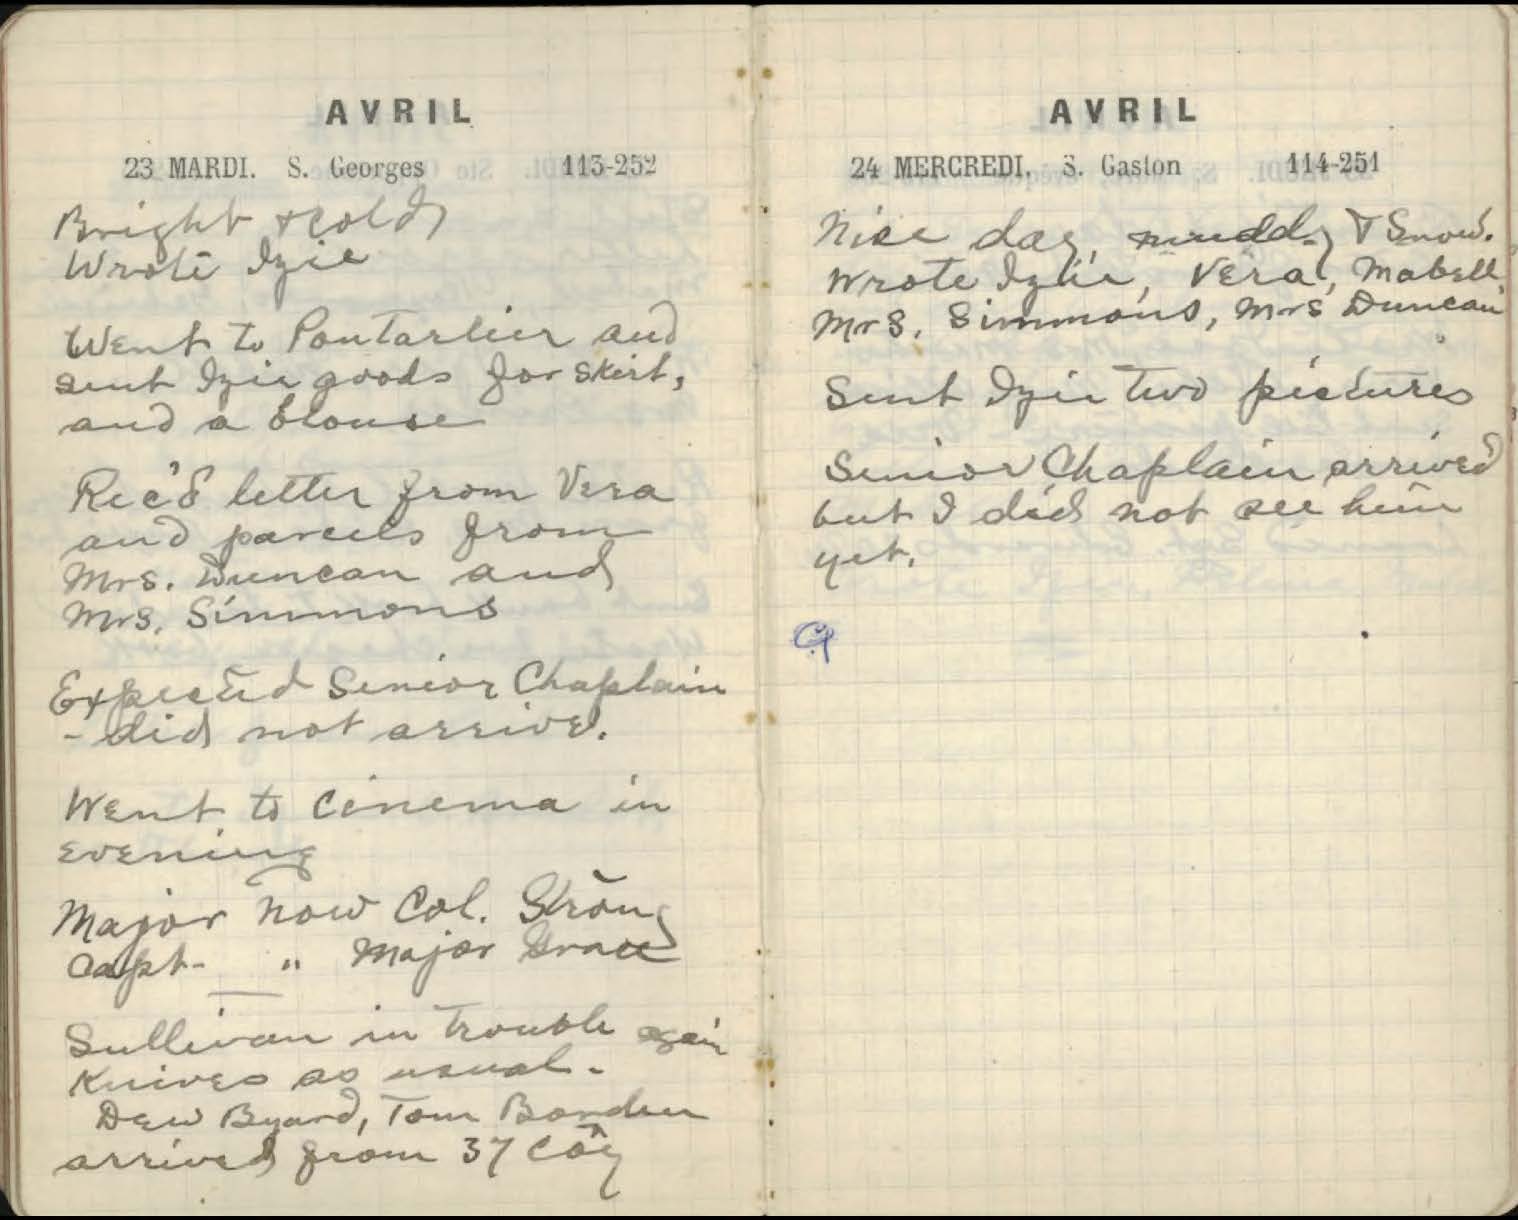 AVRIL
23 MARDI. S. Georges 113-252
Bright & Cold
Wrote Izie
Went to Pontarlier and
sent Izie goods for skirt,
and a blouse
Rec'd letter from Vera
and parcels from
Mrs. Duncan and
Mrs. Simmons
Expected Senior Chaplain
- did not arrive.
Went to cinema in
evening
Major now Col. Strong
Capt- " Major Grace
Sullivan in trouble again
Knives as usual.
Dew Byard, Tom Borden
arrived from 37 Coy
AVRIL
24 MERCREDI. S. Gaston 114-251
Nice day, muddy & Snow.
Wrote Izie, Vera, Mabell
Mrs. Simmons, Mrs Duncan
Sent Izie two pictures
Senior Chaplain arrived
but I did not see him
yet.